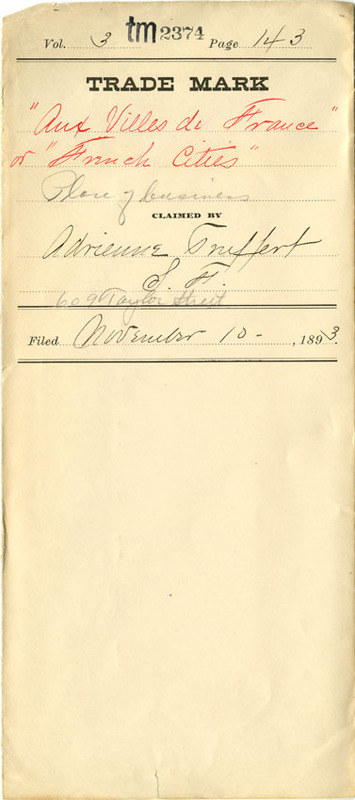 Vol. 3 tm 2374 Page 143
TRADE MARK
"Aux Villes de France"
or "French Cities"
Place of business
CLAIMED BY
Adrienne Truffert
S. F.
609 Taylor Street
Filed November 10 - , 1893.